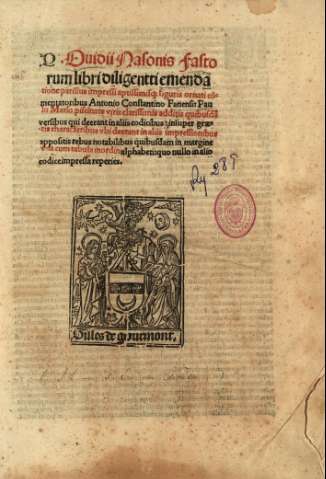 P. Ouidii Nasonis Fasto
rum libri diligenti emenda
tione perissius impressi aptissimisq3 figuris ornati cō
mentatoribus Antonio Constantino Fanensi Pau
lo Marso piscinate viris clarissimis additis quibusdā
versibus qui deerant in aliis codicibus insuper græ
cis characteribus vbi deerant in aliis impressionibus
appositis rebus notabilibus quibusdam in margine
cum tabula in ordinē alphabeti quo nullo in alio
codice impressa reperies.
Ry 289
Gilles de gourmont.